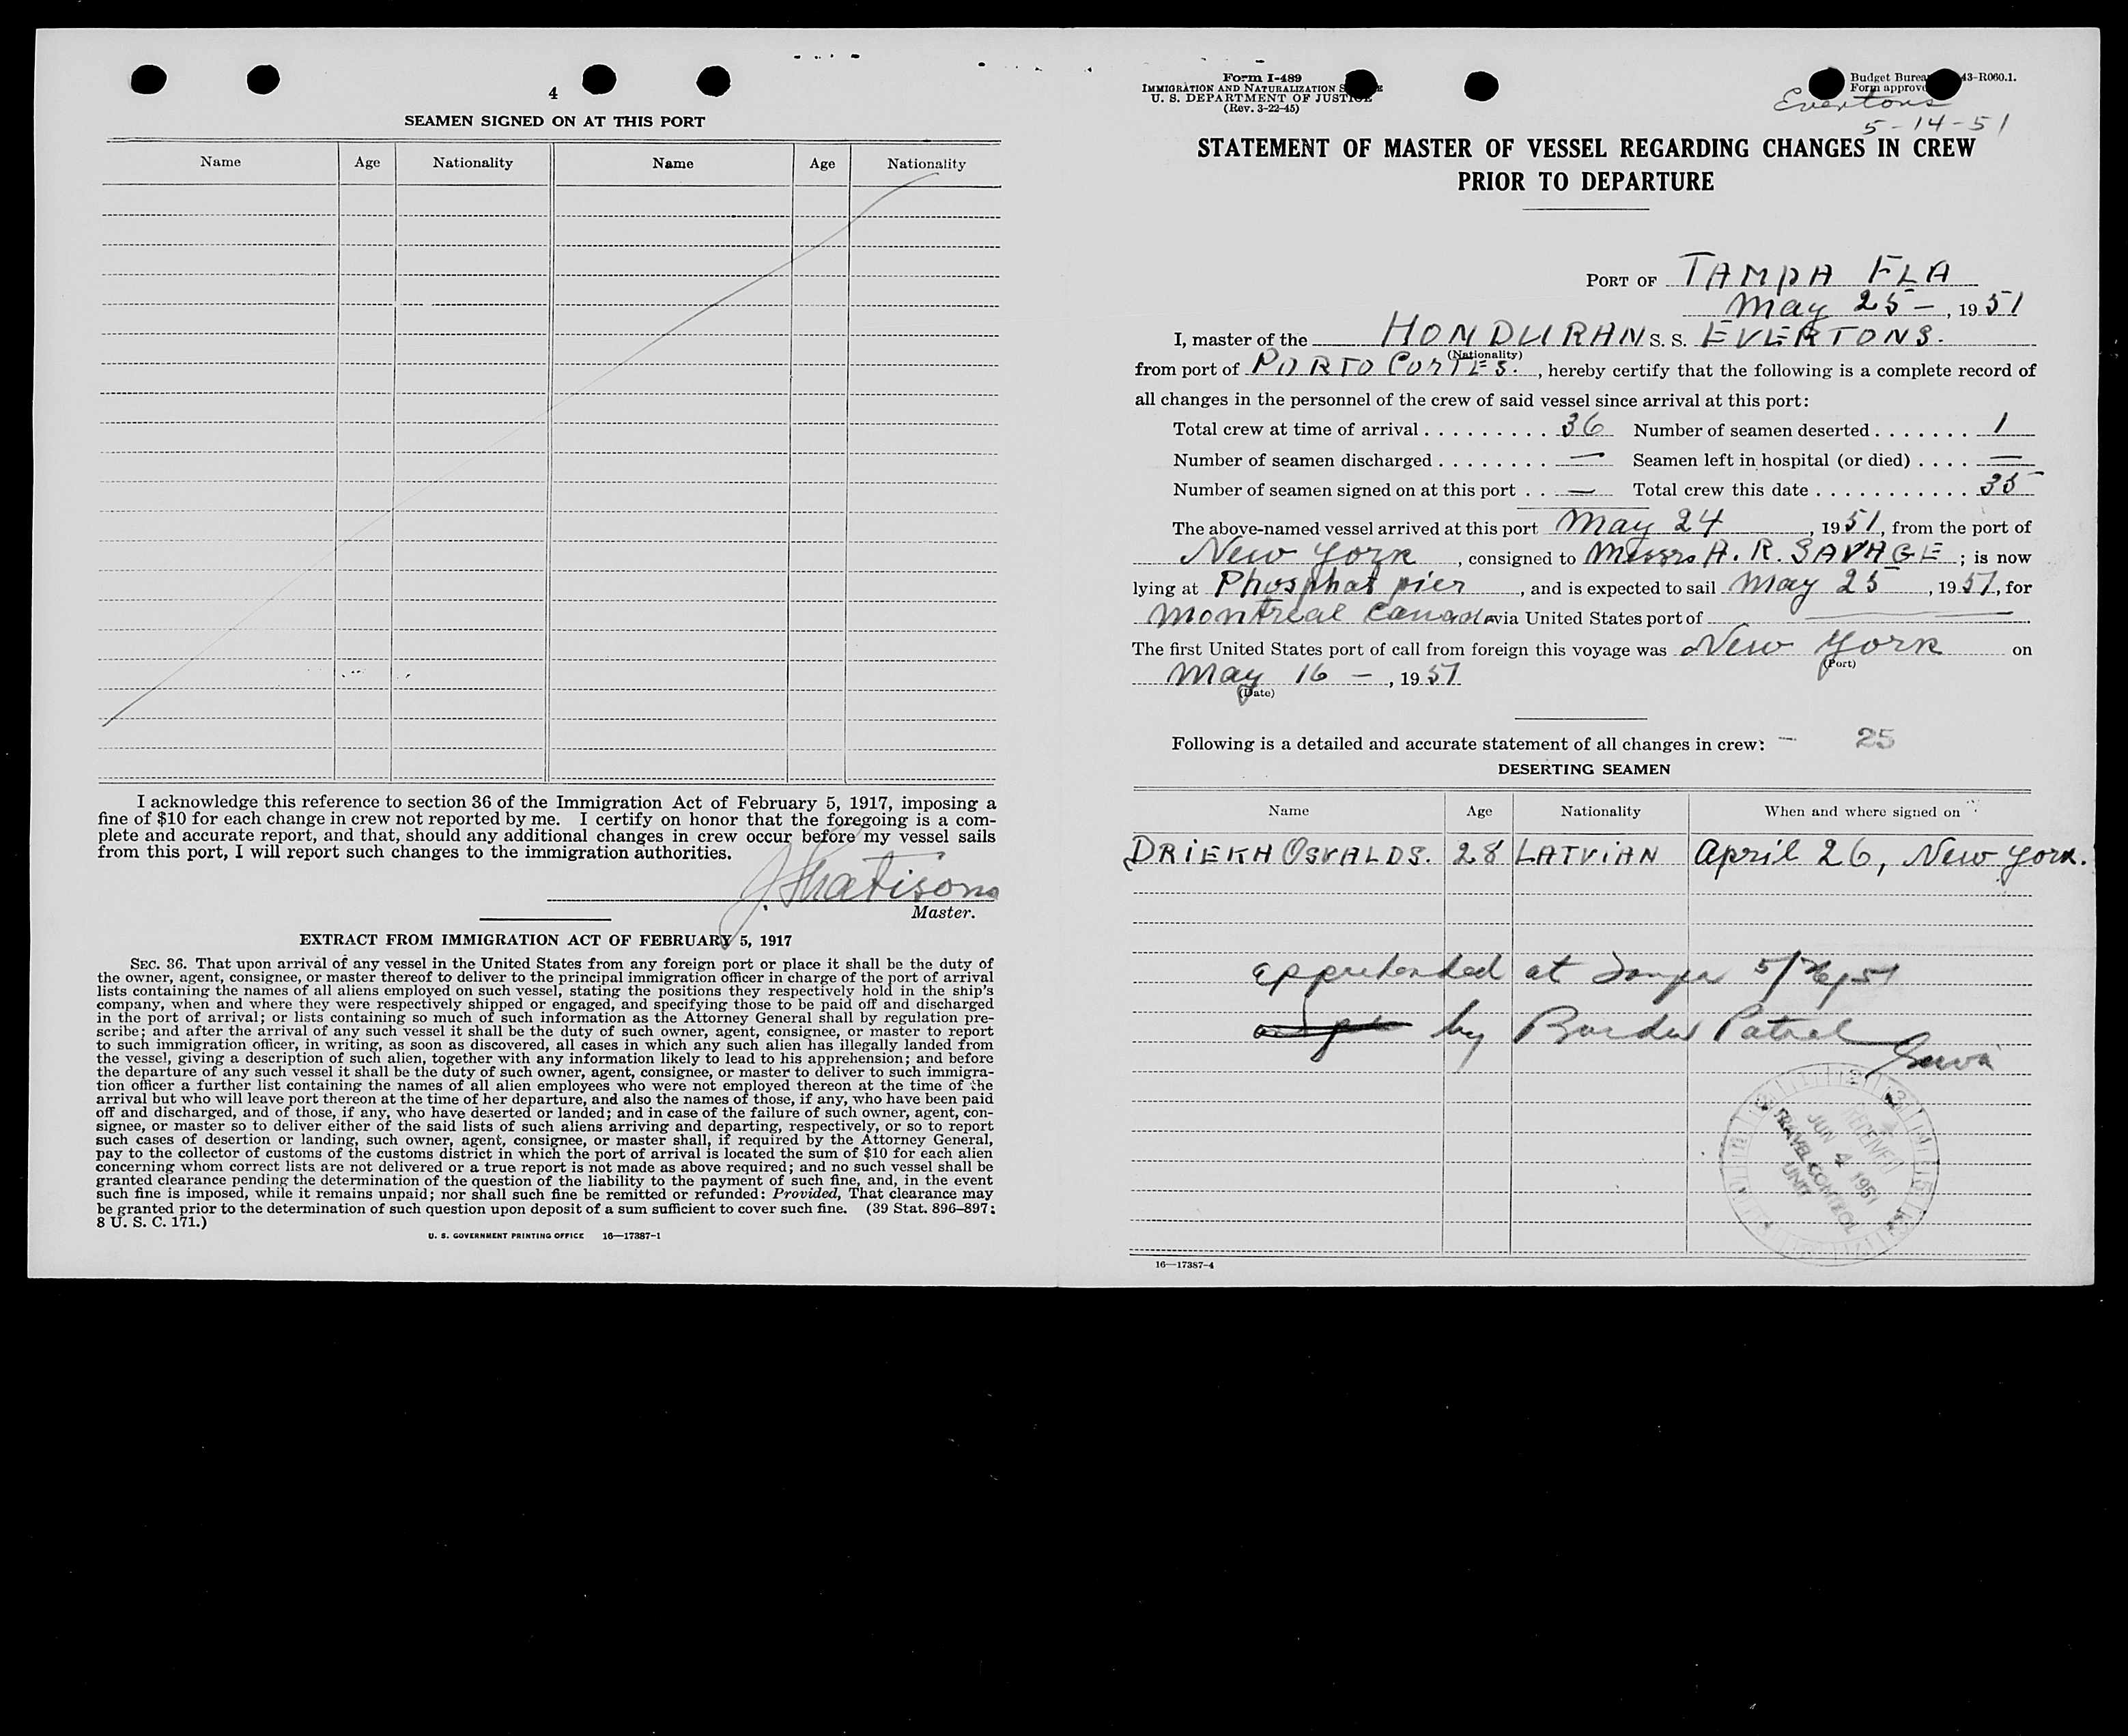 4
SEAMEN SIGNED ON AT THIS PORT
Name Age Nationality Name Age Nationality
I acknowledge this reference to section 36 of the Immigration Act of February 5, 1917, imposing a
fine of $10 for each change in crew not reported by me. I certify on honor that the foregoing is a com-
plete and accurate report, and that, should any additional changes in crew occur before my vessel sails
from this port, I will report such changes to the immigration authorities.
Master.
EXTRACT FROM IMMIGRATION ACT OF FEBRUARY 5, 1917
SEC. 36. That upon arrival of any vessel in the United States from any foreign port or place it shall be the duty of
the owner, agent, consignee, or master thereof to deliver to the principal immigration officer in charge of the port of arrival
lists containing the names of all aliens employed on such vessel, stating the positions they respectively hold in the ship's
company, when and where they were respectively shipped or engaged, and specifying those to be paid off and discharged
in the port of arrival; or lists containing so much of such information as the Attorney General shall by regulation pre-
scribe; and after the arrival of any such vessel it shall be the duty of such owner, agent, consignee, or master to report
to such immigration officer, in writing, as soon as discovered, all cases in which any such alien has illegally landed from
the vessel, giving a description of such alien, together with any information likely to lead to his apprehension; and before
the departure of any such vessel it shall be the duty of such owner, agent, consignee, or master to deliver to such immigra-
tion officer a further list containing the names of all alien employees who were not employed thereon at the time of the
arrival but who will leave port thereon at the time of her departure, and also the names of those, if any, who have been paid
off and discharged, and of those, if any, who have deserted or landed; and in case of the failure of such owner, agent, con-
signee, or master so to deliver either of the said lists of such aliens arriving and departing, respectively, or so to report
such cases of desertion or landing, such owner, agent, consignee, or master shall, if required by the Attorney General,
pay to the collector of customs of the customs district in which the port of arrival is located the sum of $10 for each alien
concerning whom correct lists are not delivered or a true report is not made as above required; and no such vessel shall be
granted clearance pending the determination of the question of the liability to the payment of such fine, and, in the event
such fine is imposed, while it remains unpaid; nor shall such fine be remitted or refunded: Provided, That clearance may
be granted prior to the determination of such question upon deposit of a sum sufficient to cover such fine. (39 Stat. 896–897;
8 U. S. C. 171.)
U. S. GOVERNMENT PRINTING OFFICE 16—17387-1
Form I-489
IMMIGRATION AND NATURALIZATION
U. S. DEPARTMENT OF JUSTICE
(Rev. 3-22-45)
Budget Bureau 43-R060.1.
Form approved
Evertons
5-14-51
STATEMENT OF MASTER OF VESSEL REGARDING CHANGES IN CREW
PRIOR TO DEPARTURE
PORT OF TAMPA FLA
May 25 –, 1951
I, master of the HONDURAN S. S. EVERTONS.
(Nationality)
from port of PORTO CORTES., hereby certify that the following is a complete record of
all changes in the personnel of the crew of said vessel since arrival at this port:
Total crew at time of arrival . . . . . . . . . . 36 Number of seamen deserted . . . . . . . 1
Number of seamen discharged . . . . . . . . — Seamen left in hospital (or died) . . . . —
Number of seamen signed on at this port . . — Total crew this date . . . . . . . . . . . . 35
The above-named vessel arrived at this port May 24, 1951, from the port of
New York, consigned to Messrs A. R. SAVAGE; is now
lying at Phosphat pier, and is expected to sail May 25, 1951, for
Montreal Canada via United States port of —
The first United States port of call from foreign this voyage was New York on
(Port)
May 16 –, 1951
(Date)
Following is a detailed and accurate statement of all changes in crew: – 25
DESERTING SEAMEN
Name Age Nationality When and where signed on
DRIEKH OSVALDS. 28 LATVIAN April 26, New York.
apprehended at Tampa 5/26/51
by Border Patrol
RECEIVED
JUN 4 1951
TRAVEL CONTROL
UNIT
16—17387-4